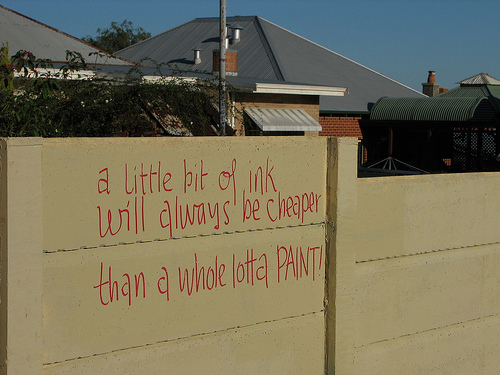 a little bit of ink
will always be cheaper
than a whole lotta PAINT!